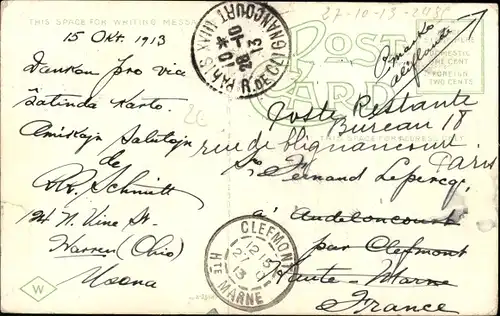 THIS SPACE FOR WRITING MESSA
15 Okt. 1913
Dankon pro via
ŝatinda karto.
Amikajn Salutojn
de
R.R. Schmitt
124 N. Vine St.
Warren (Ohio)
Usono
W
PARIS
R. DE CLIGNANCOURT
28 - 10
13
27-10-13
POST CARD
DOMESTIC
ONE CENT
FOREIGN
TWO CENTS
Poste Restante
Bureau 18
rue de Clignancourt
Paris
THIS SPACE FOR ADDRESS ONLY
Sro Fernand Lepercq,
à Audeloncourt
par Clefmont
Haute-Marne
France
CLEFMONT
HTE MARNE
13